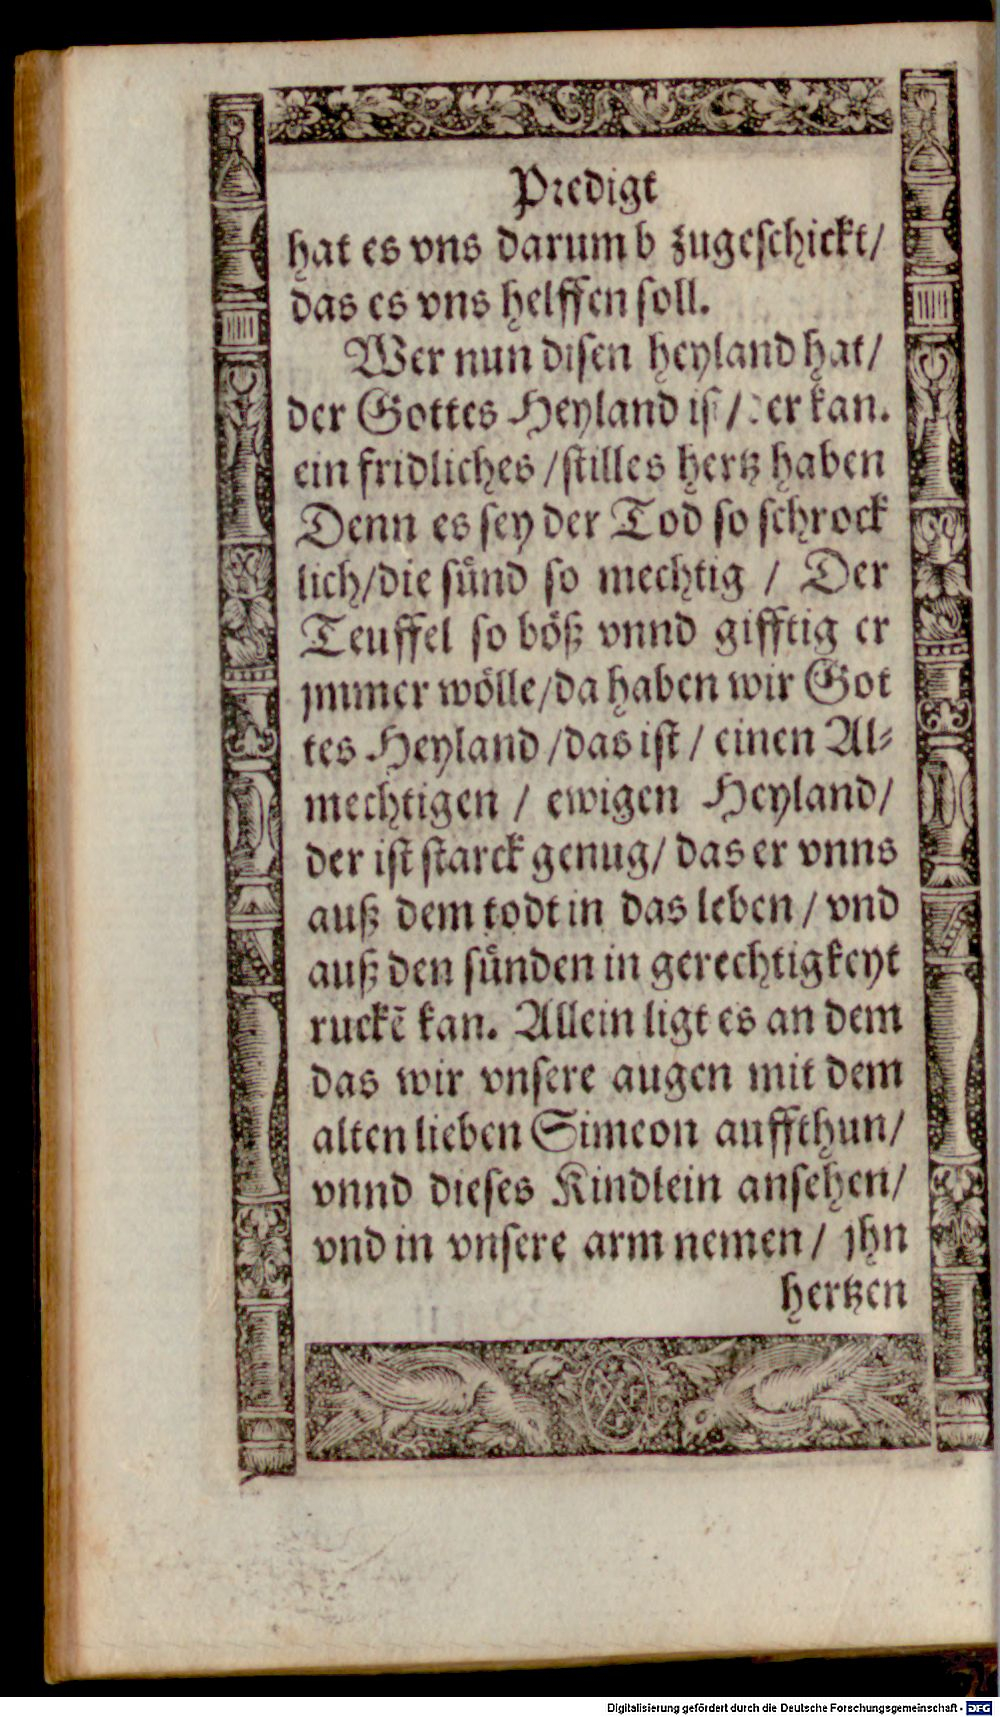 Predigt
hat es vns darumb zugeschickt/
das es vns helffen soll.
Wer nun disen heyland hat/
der Gottes Heyland ist/der kan.
ein fridliches/stilles hertz haben
Denn es sey der Tod so schrock
lich/die sünd so mechtig / Der
Teuffel so böß vnnd gifftig er
jmmer wölle/da haben wir Got
tes Heyland/das ist/ einen Al⸗
mechtigen / ewigen Heyland/
der ist starck genug/ das er vnns
auß dem todt in das leben/ vnd
auß den sünden in gerechtigkeyt
ruckẽ kan. Allein ligt es an dem
das wir vnsere augen mit dem
alten lieben Simeon auffthun/
vnnd dieses Kindlein ansehen/
vnd in vnsere arm nemen/ jhn
hertzen
Digitalisierung gefördert durch die Deutsche Forschungsgemeinschaft - DFG